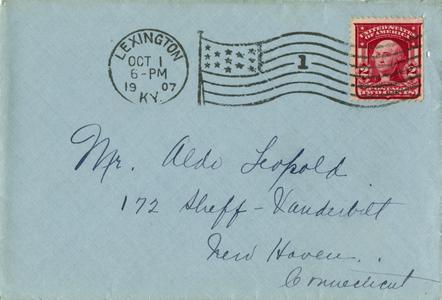 LEXINGTON
OCT 1
6-PM
1907
KY.
1
UNITED STATES
OF AMERICA
2 2
POSTAGE
TWO CENTS
Mr. Aldo Leopold.
172 Sheff-Vanderbilt
New Haven.
Connecticut